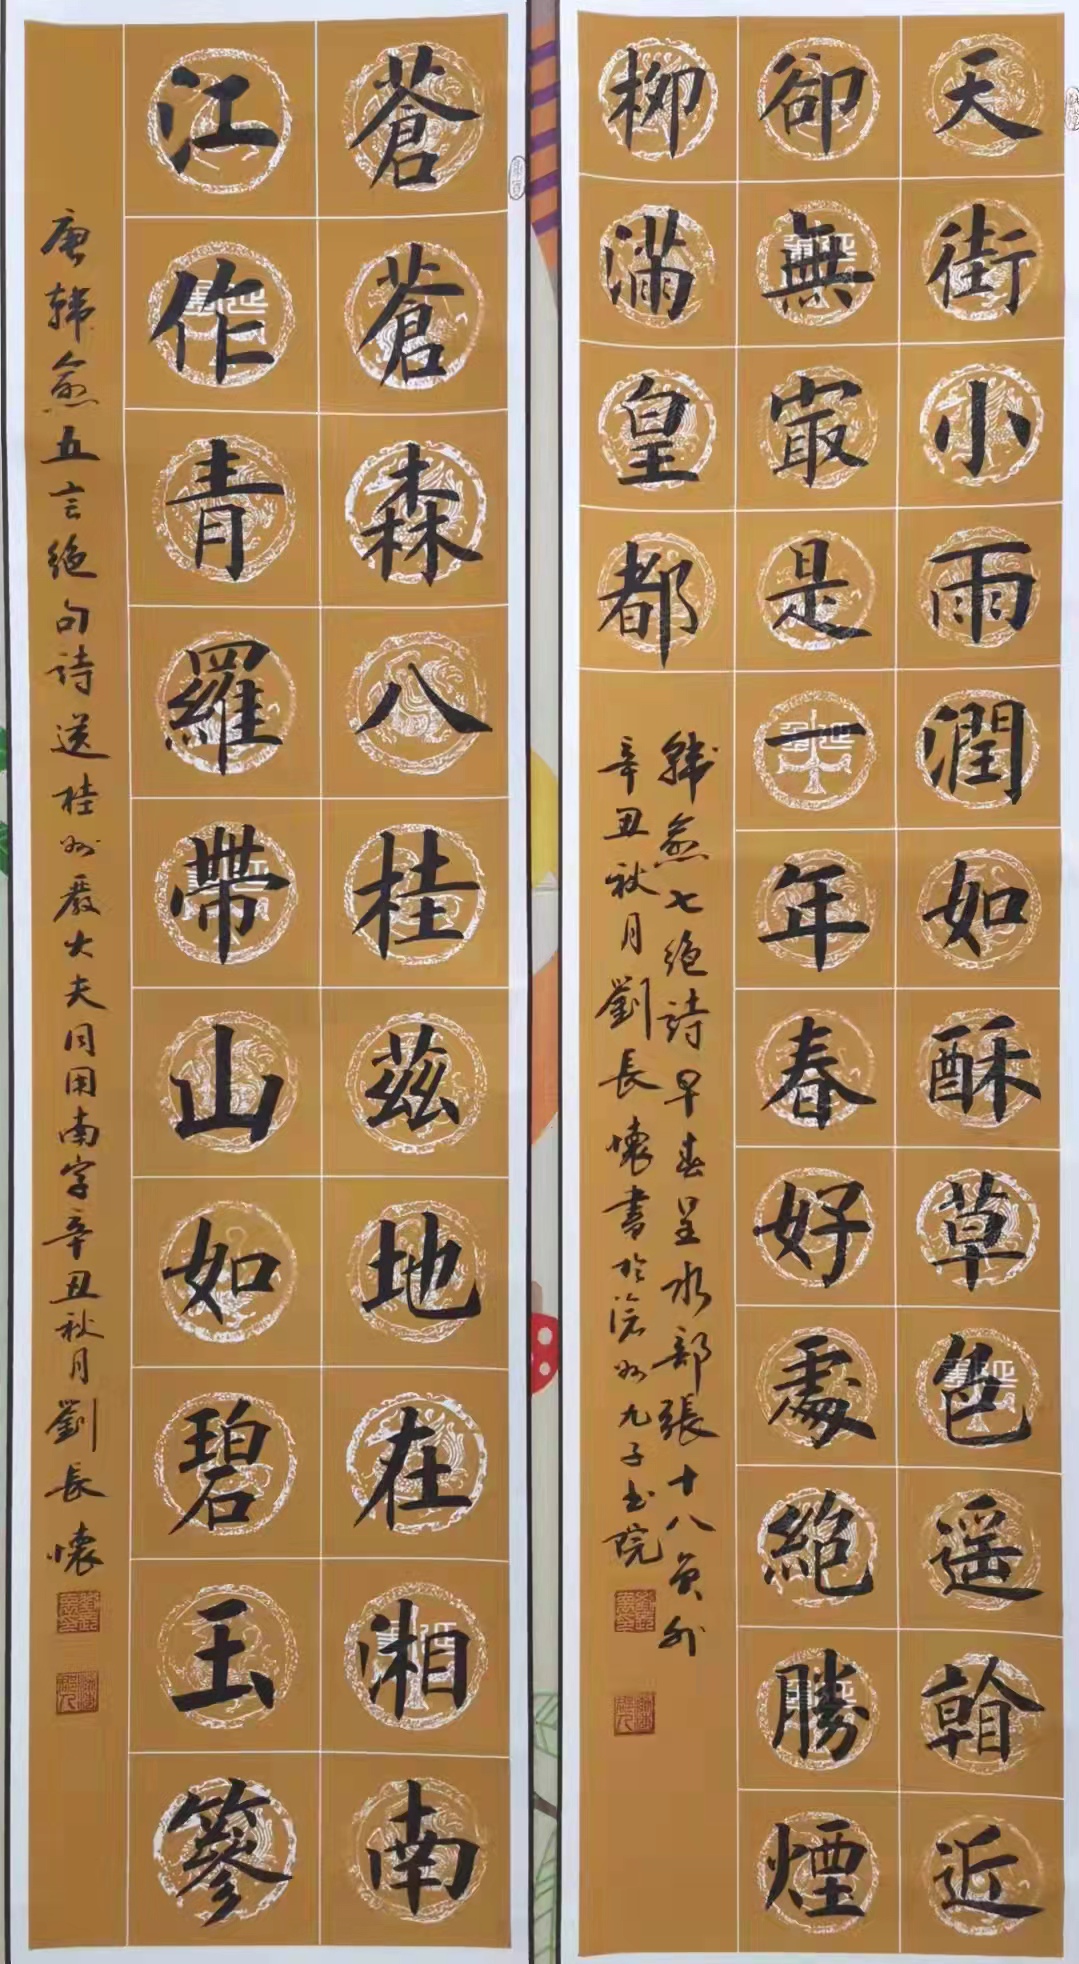 天街小雨潤如酥草色遥看近
卻無最是一年春好處絶勝煙
柳滿皇都
韓愈七絶詩早春呈水部張十八員外
辛丑秋月劉長懷書於滄州九子書院
蒼蒼森八桂茲地在湘南
江作青羅帶山如碧玉篸
唐韓愈五言絶句詩送桂州嚴大夫同用南字辛丑秋月劉長懷